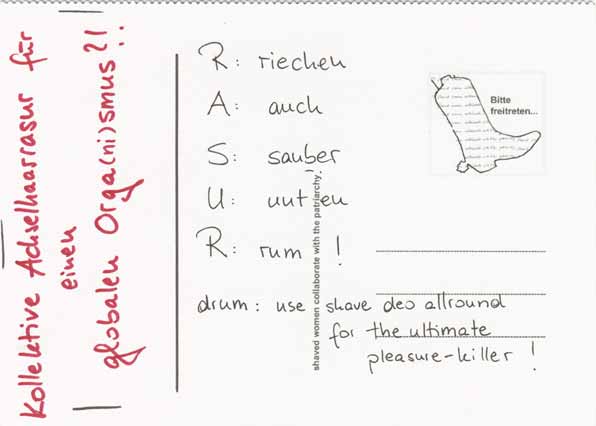 Kollektive Achselhaarrasur für
einen
globalen Orga(ni)smus?!
R: riechen
A: auch
S: sauber
U: unten
R: rum !
drum: use shave deo allround
for the ultimate
pleasure-killer !
shaved women collaborate with the patriarchy.
Bitte
freitreten...